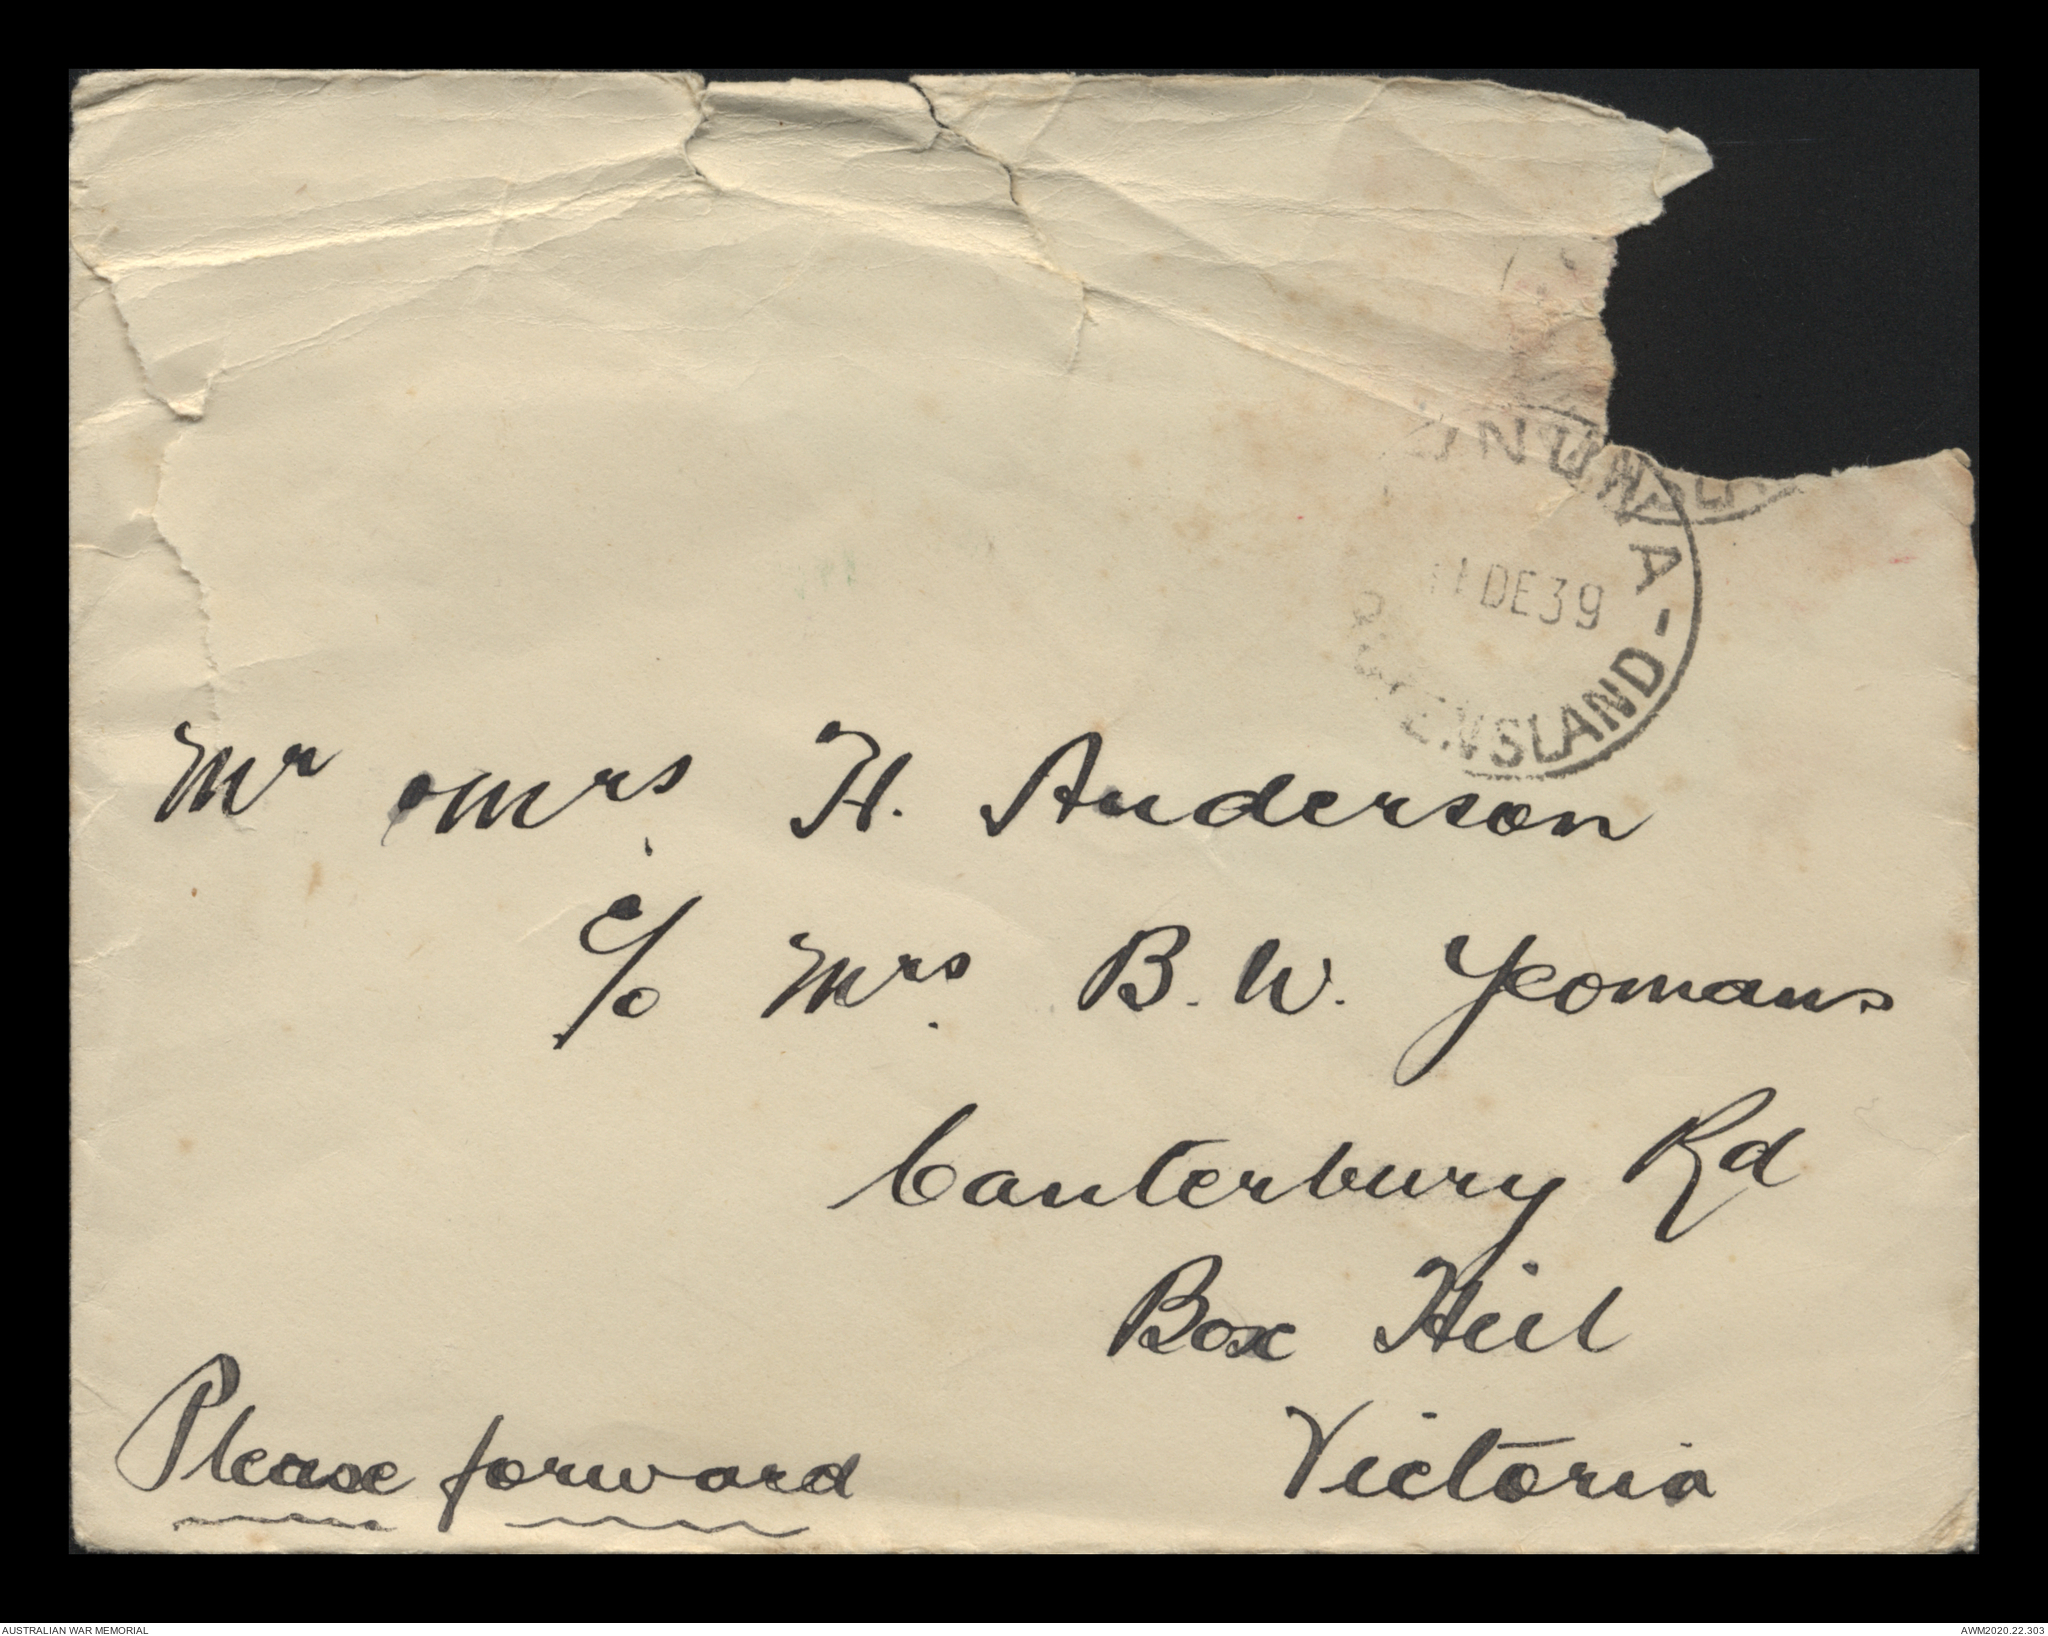 11 DE 39
QUEENSLAND
Mr & Mrs H. Anderson
c/o Mrs B. W. Yeomans
Canterbury Rd
Box Hill
Victoria
Please forward
AUSTRALIAN WAR MEMORIAL
AWM2020.22.303